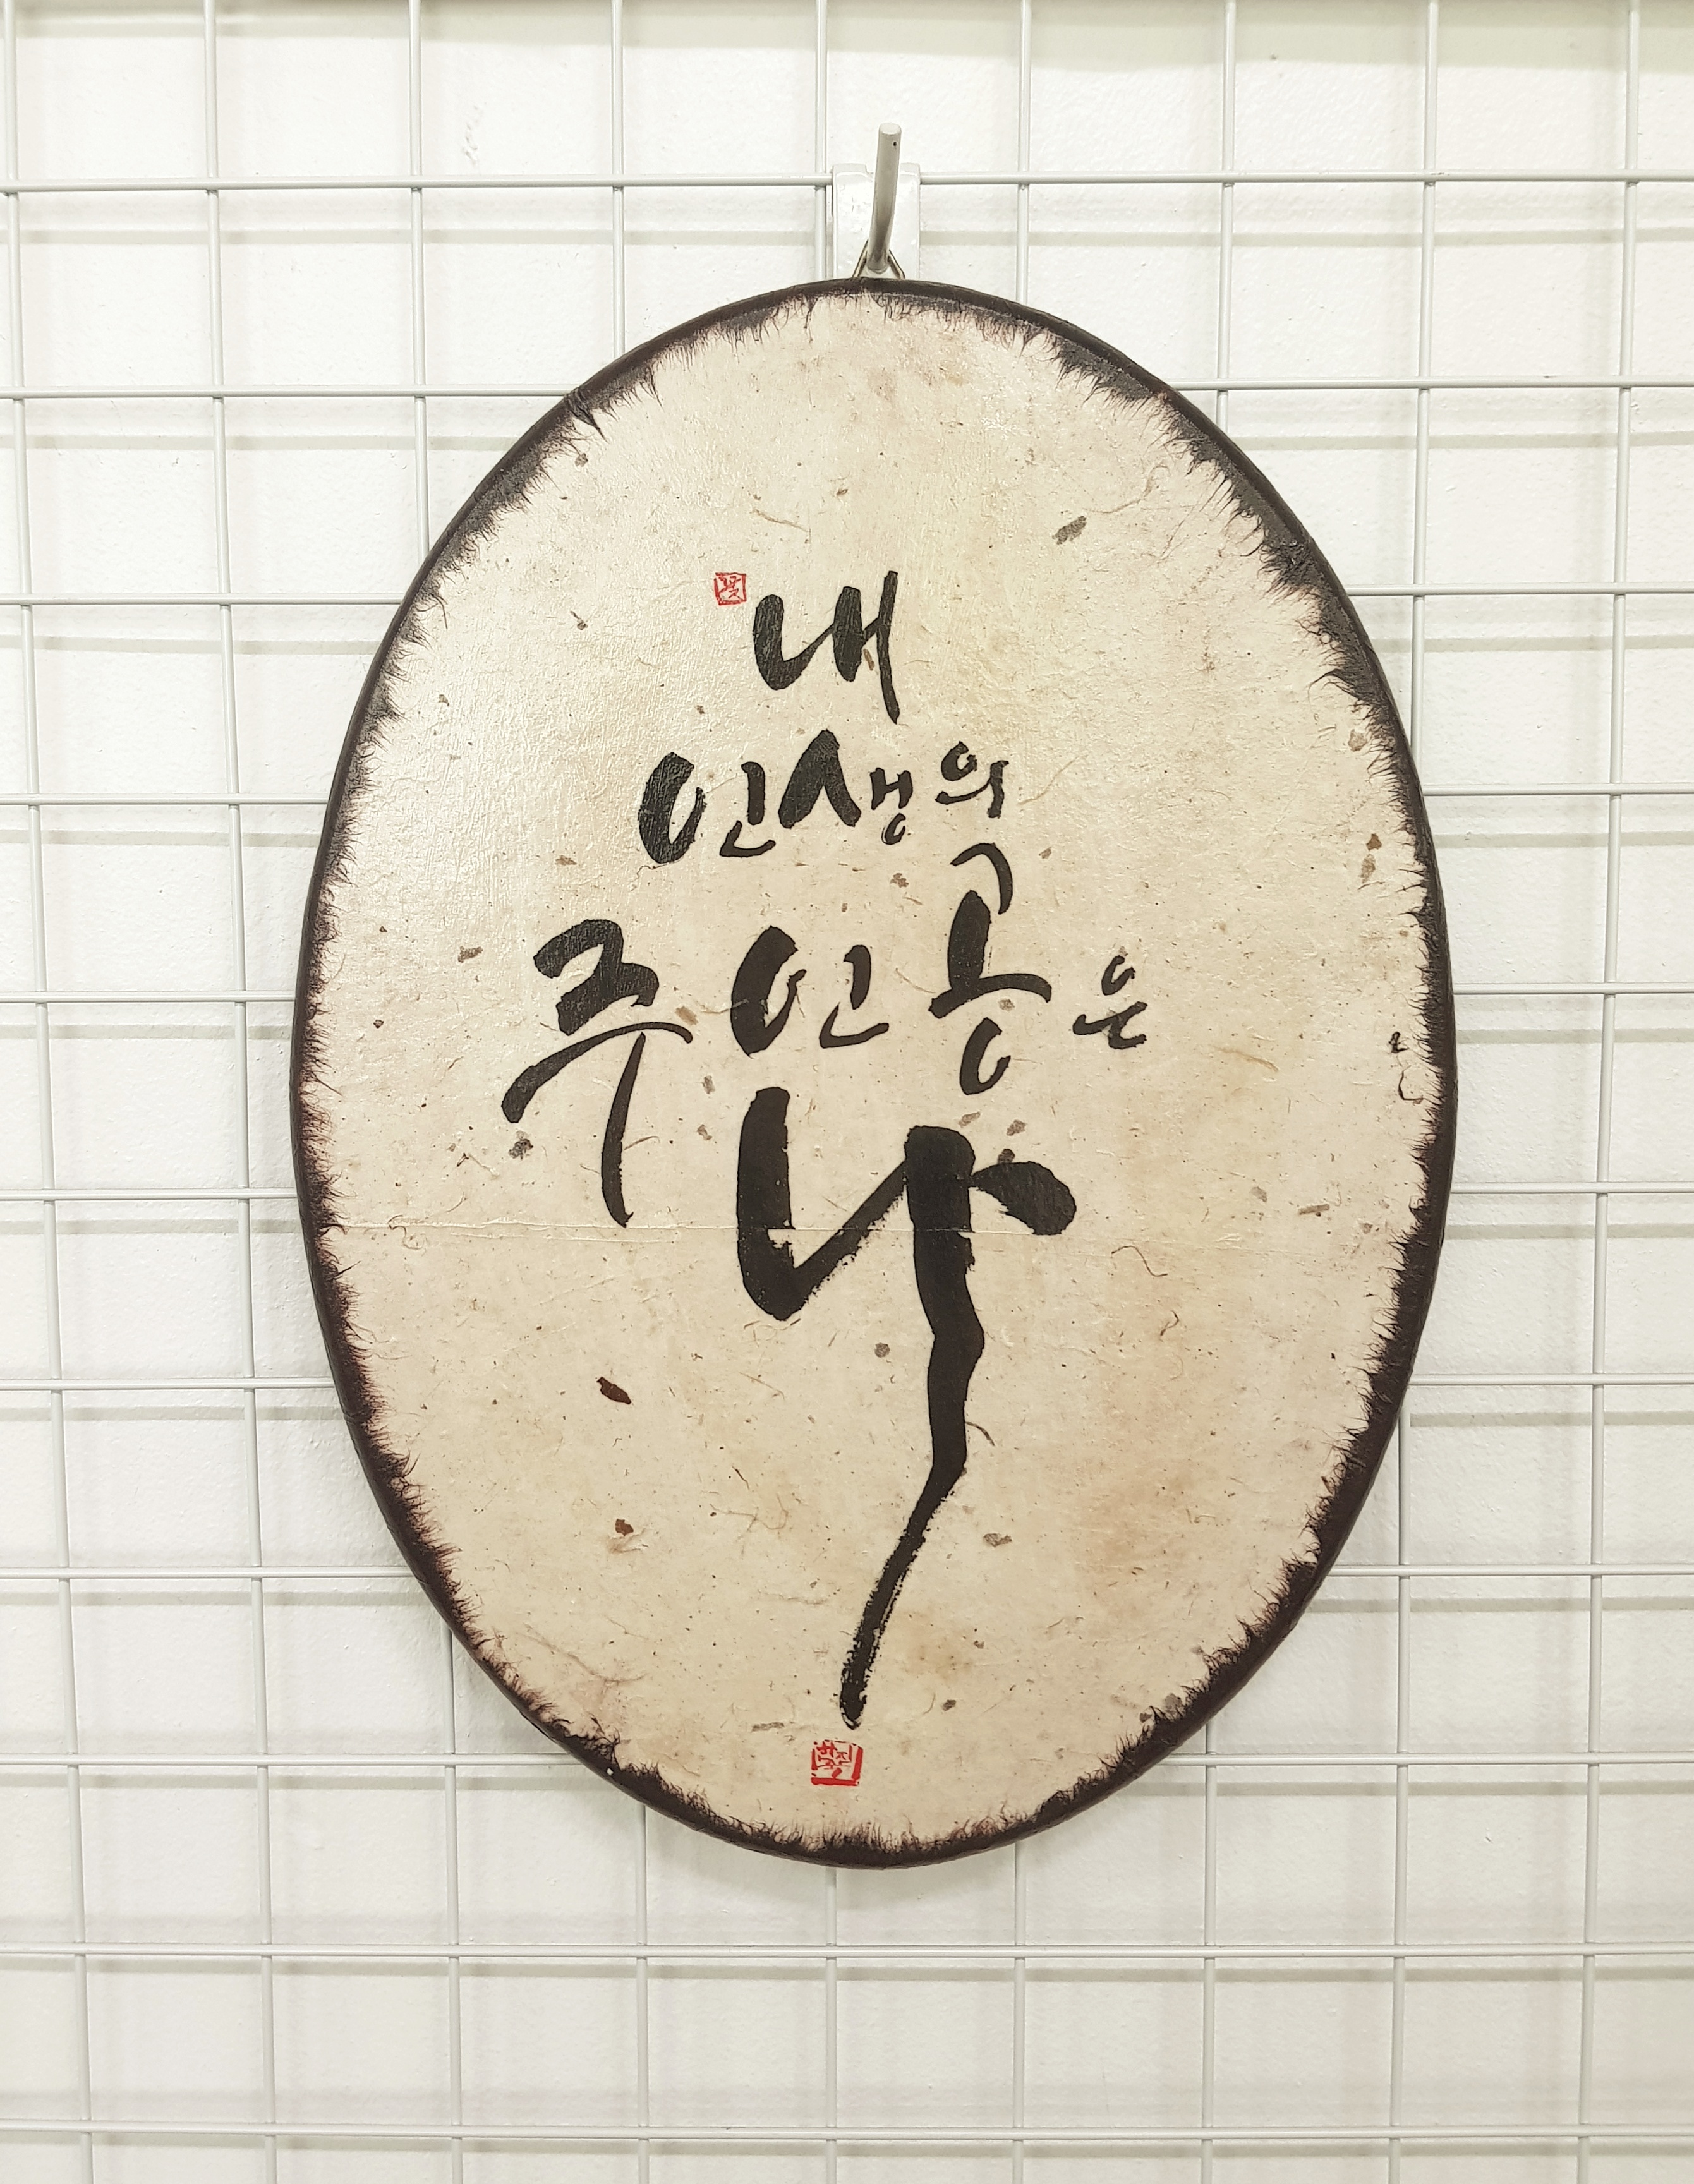 내
인생의
주인공은
나